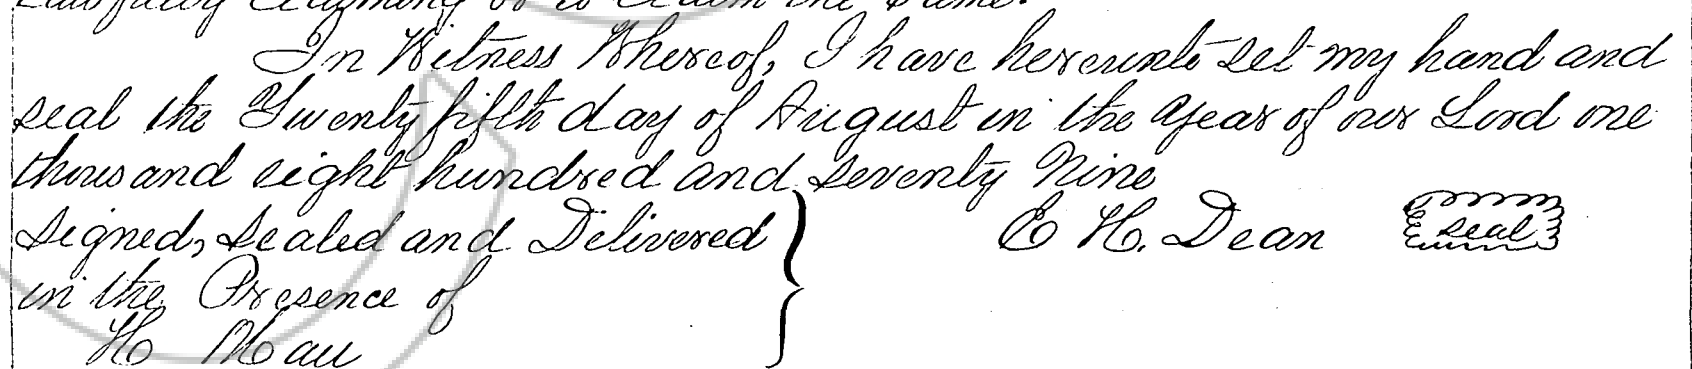 Lawfully claiming or to claim the same.
In Witness Whereof, I have hereunto set my hand and
seal the Twenty fifth day of August in the year of our Lord one
thousand eight hundred and seventy Nine
Signed, Sealed and Delivered
E H. Dean seal
in the Presence of
H Mau